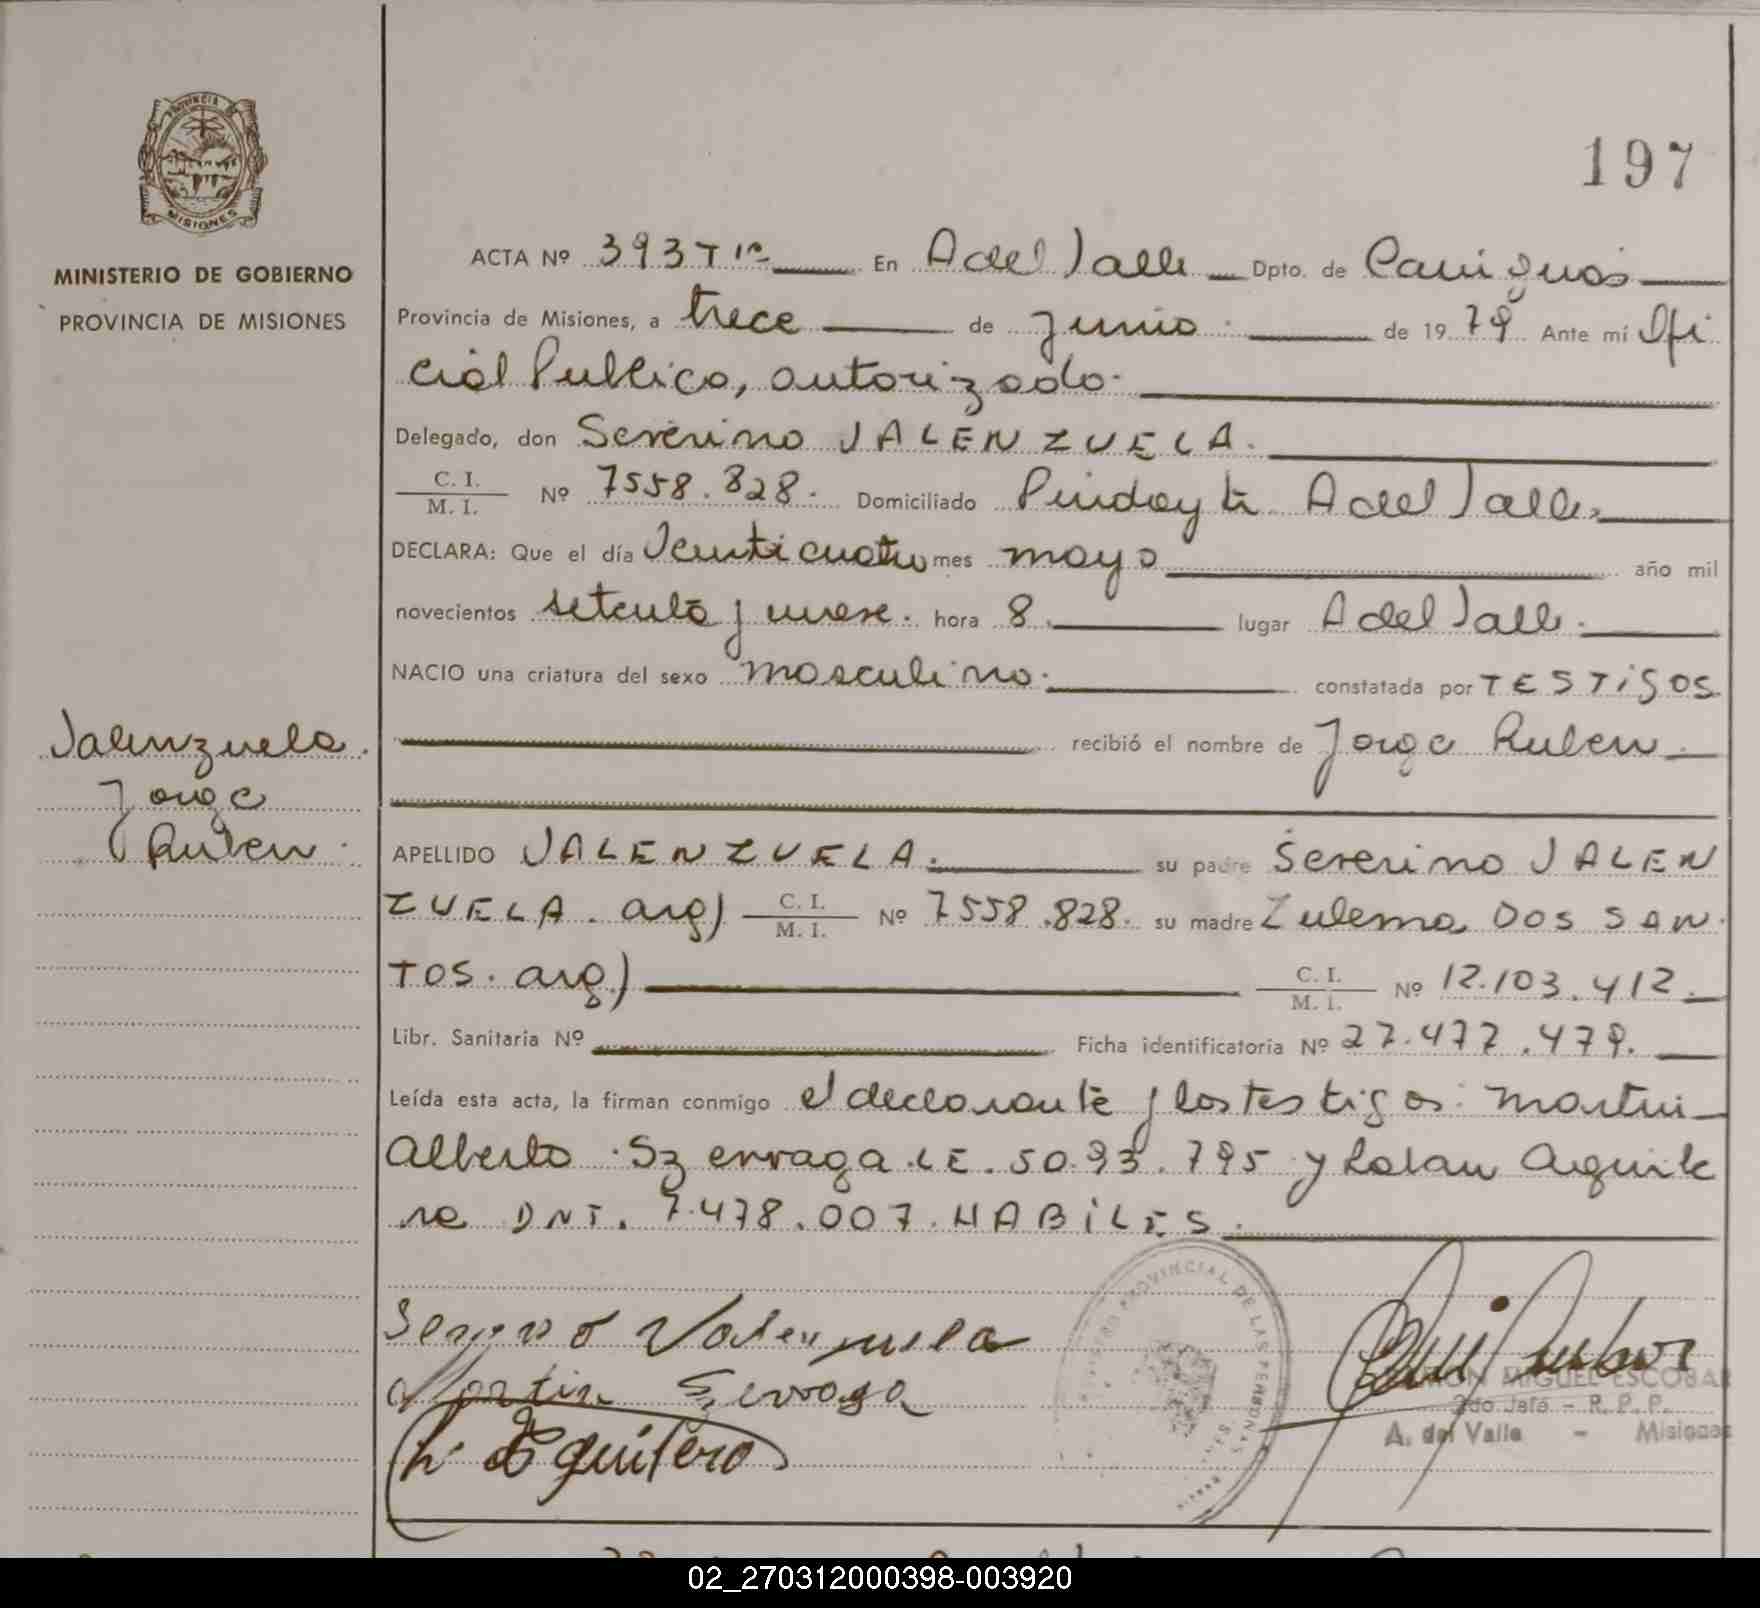 PROVINCIA DE
MISIONES
MINISTERIO DE GOBIERNO
PROVINCIA DE MISIONES
197
ACTA Nº 393 T 1ª En A del Valle Dpto. de Cainguás
Provincia de Misiones, a trece de junio de 1979 Ante mí Ofi
cial Publico, autorizado.
Delegado, don Severino VALENZUELA.
C. I. / M. I. Nº 7558.828. Domiciliado Pindayti A del Valle.
DECLARA: Que el día Veinticuatro mes mayo año mil
novecientos setenta y nueve. hora 8. lugar A del Valle.
NACIO una criatura del sexo masculino. constatada por TESTIGOS
recibió el nombre de Jorge Ruben
Valenzuela.
Jorge
Ruben.
APELLIDO VALENZUELA. su padre Severino VALEN
ZUELA. arg) C. I. / M. I. Nº 7558.828. su madre Zulema DOS SAN
TOS. arg.) C. I. / M. I. Nº 12.103.412.
Libr. Sanitaria Nº Ficha identificatoria Nº 27.477.479.
Leída esta acta, la firman conmigo el declarante y los testigos: Martin
Alberto Szerraga LE. 50.93.795 y Rolan Aguile
ra DNI. 7.478.007. HABILES.
REGISTRO PROVINCIAL DE LAS PERSONAS
Valenzuela
Martin
RAMON MIGUEL ESCOBAR
2do Jefe - R. P. P.
A. del Valle - Misiones
02_270312000398-003920